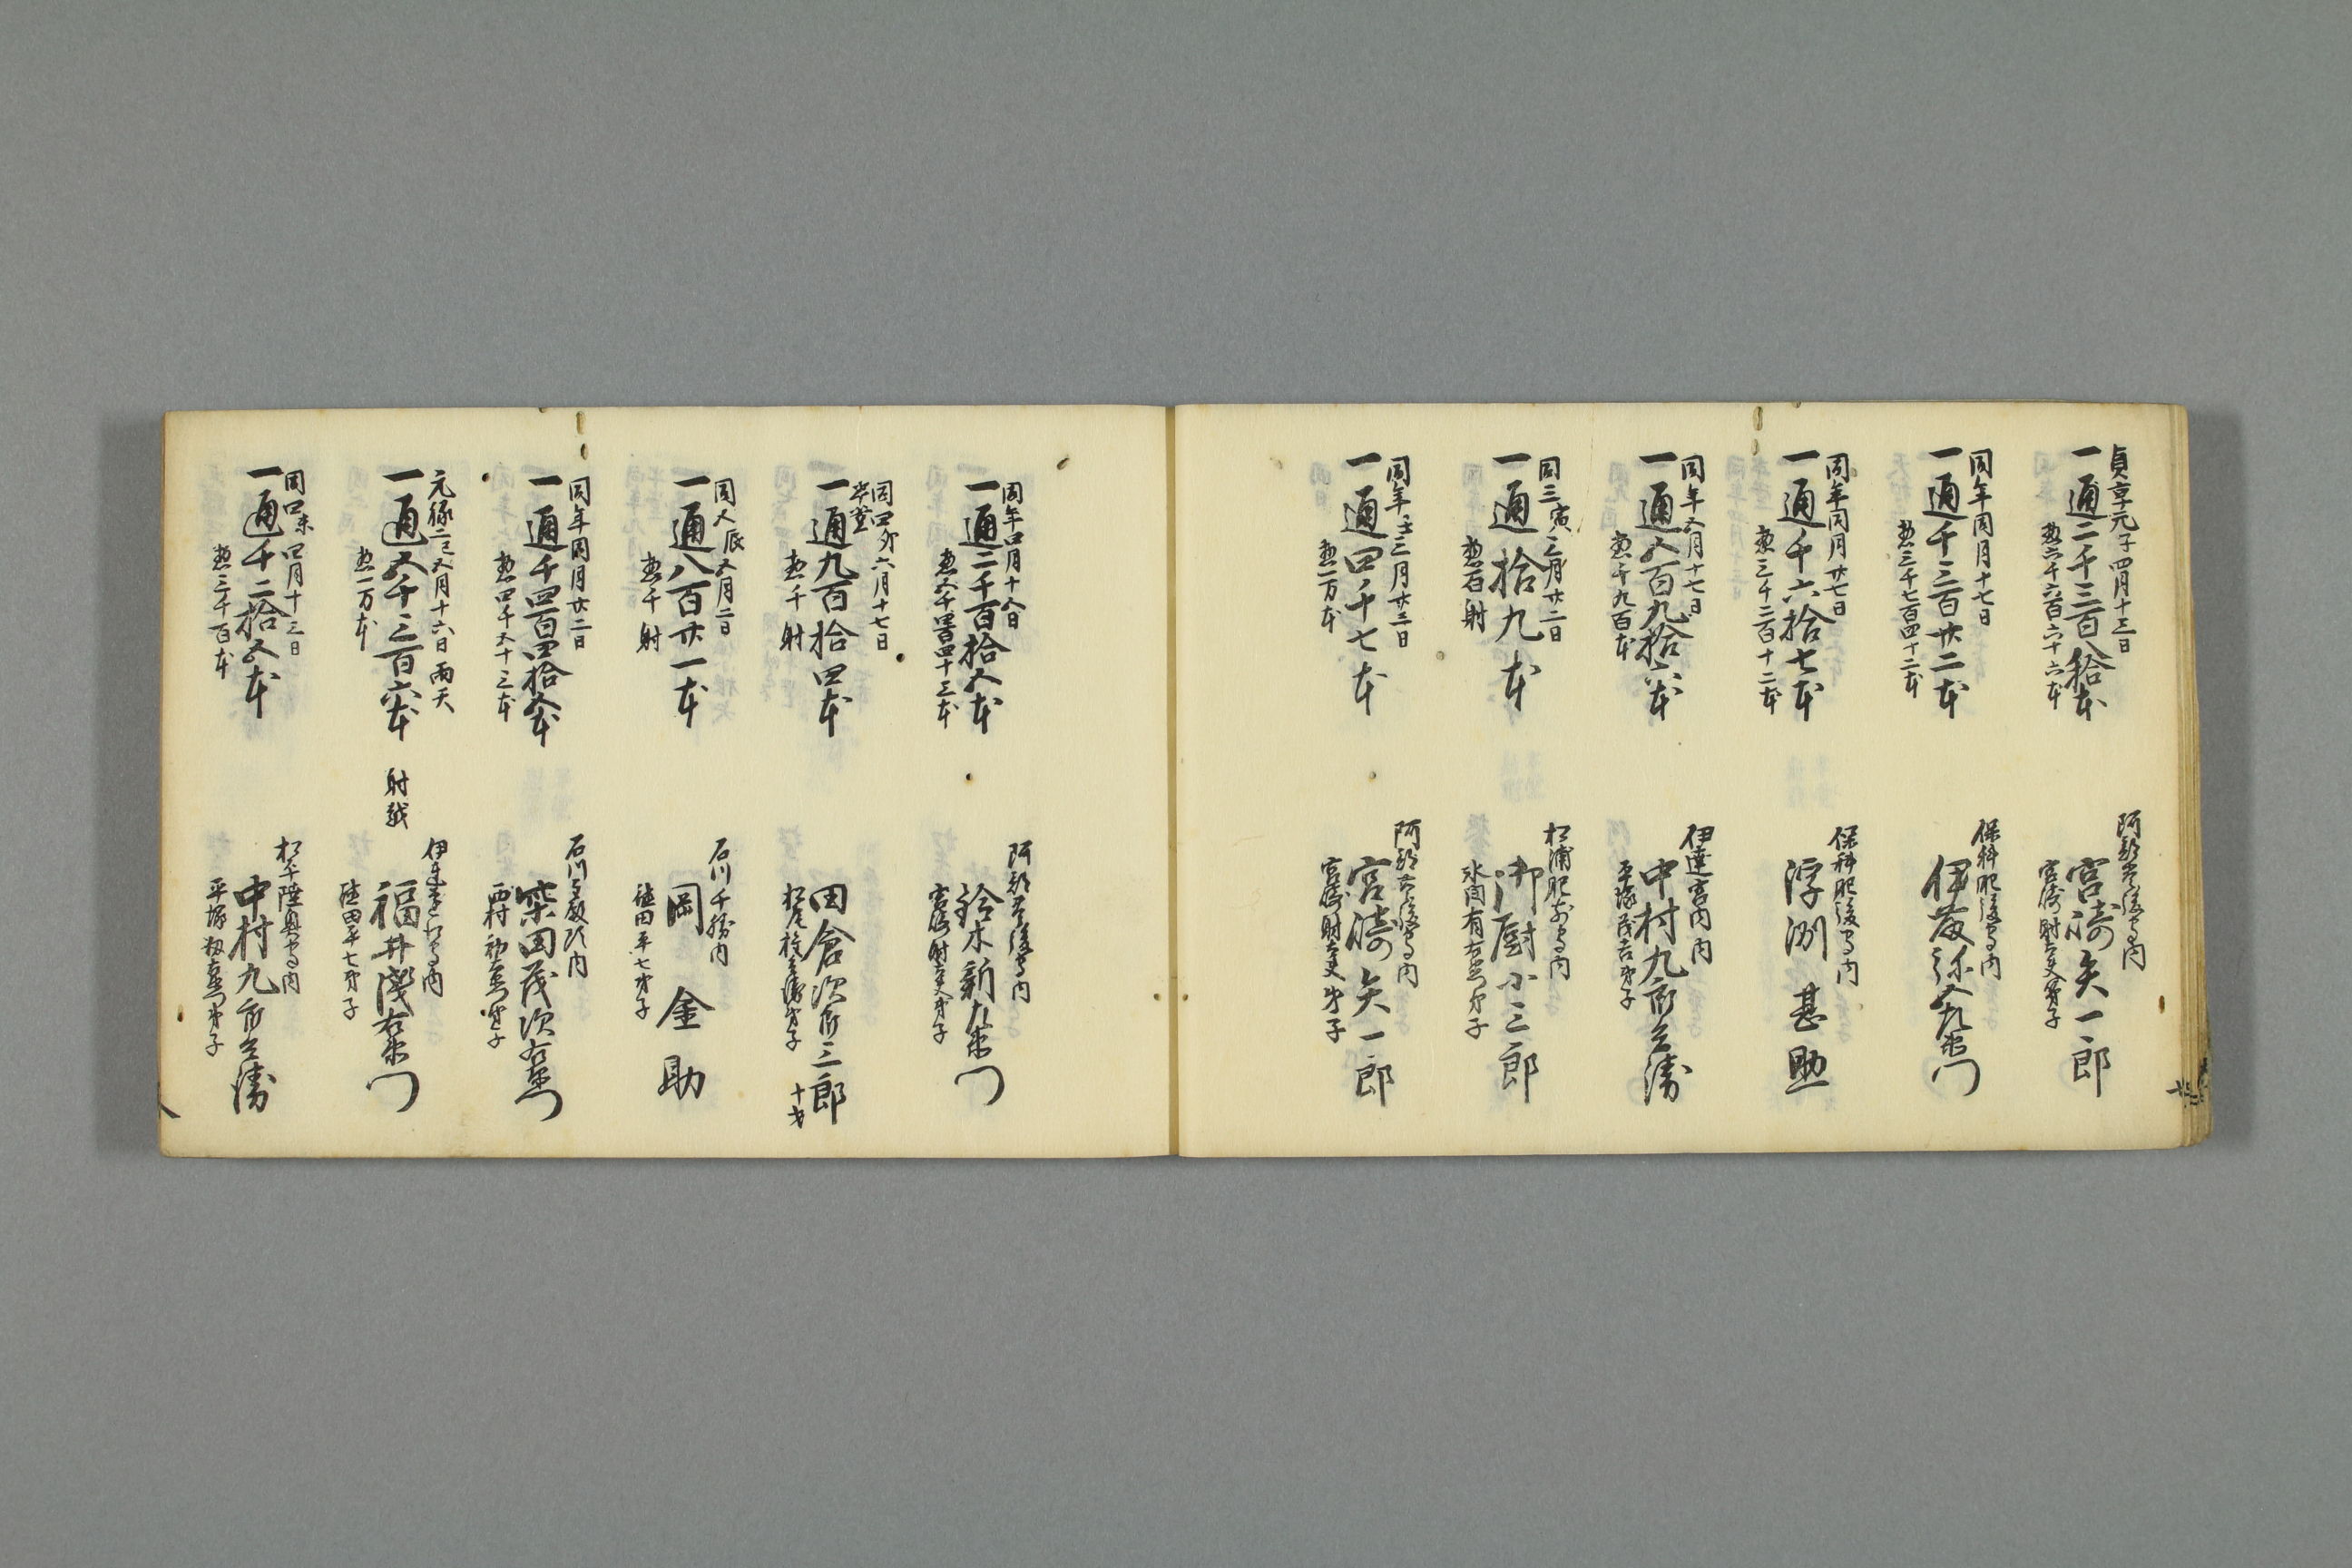 貞享元子四月十三日
一通二千三百八拾本
惣六千六百六十六本
阿部豊後守内
宮崎矢一郎
宮崎射大夫弟子
同年同月十七日
一通千三百廿二本
惣三千七百四十二本
保科肥後守内
伊藤弥五左衛門
同年同月廿七日
一通千六拾七本
惣三千二百十二本
保科肥後守内
浮洲甚助
同年五月十七日
一通五百九拾六本
惣千九百本
伊達宮内内
中村九郎兵衛
平塚茂吉弟子
同三寅三月廿二日
一通拾九本
惣百射
松浦肥前守内
御厨小三郎
弟子
同年壬三月廿三日
一通四千七本
惣一万本
阿部豊後守内
宮崎矢一郎
宮崎射大夫弟子
同年四月十八日
一通二千百拾五本
惣五千四百四十三本
阿部豊後守内
鈴木新左衛門
宮崎射大夫弟子
同四夘六月十七日
半堂
一通九百拾四本
惣千射
田倉次郎三郎
弟子
十才
同五辰五月二日
一通八百廿一本
惣千射
石川千勝内
岡金助
穂田平七弟子
同年同月廿二日
一通千四百四拾五本
惣四千五十三本
石川主殿頭内
柴田茂次右衛門
西村弟子
元禄二巳五月十六日雨天
一通五千三百六本
惣一万本
射越
伊達遠江守内
福井浅右衛門
穂田平七弟子
同四未四月十三日
一通千二拾五本
惣三千百本
松平陸奥守内
中村九郎兵衛
平塚弟子